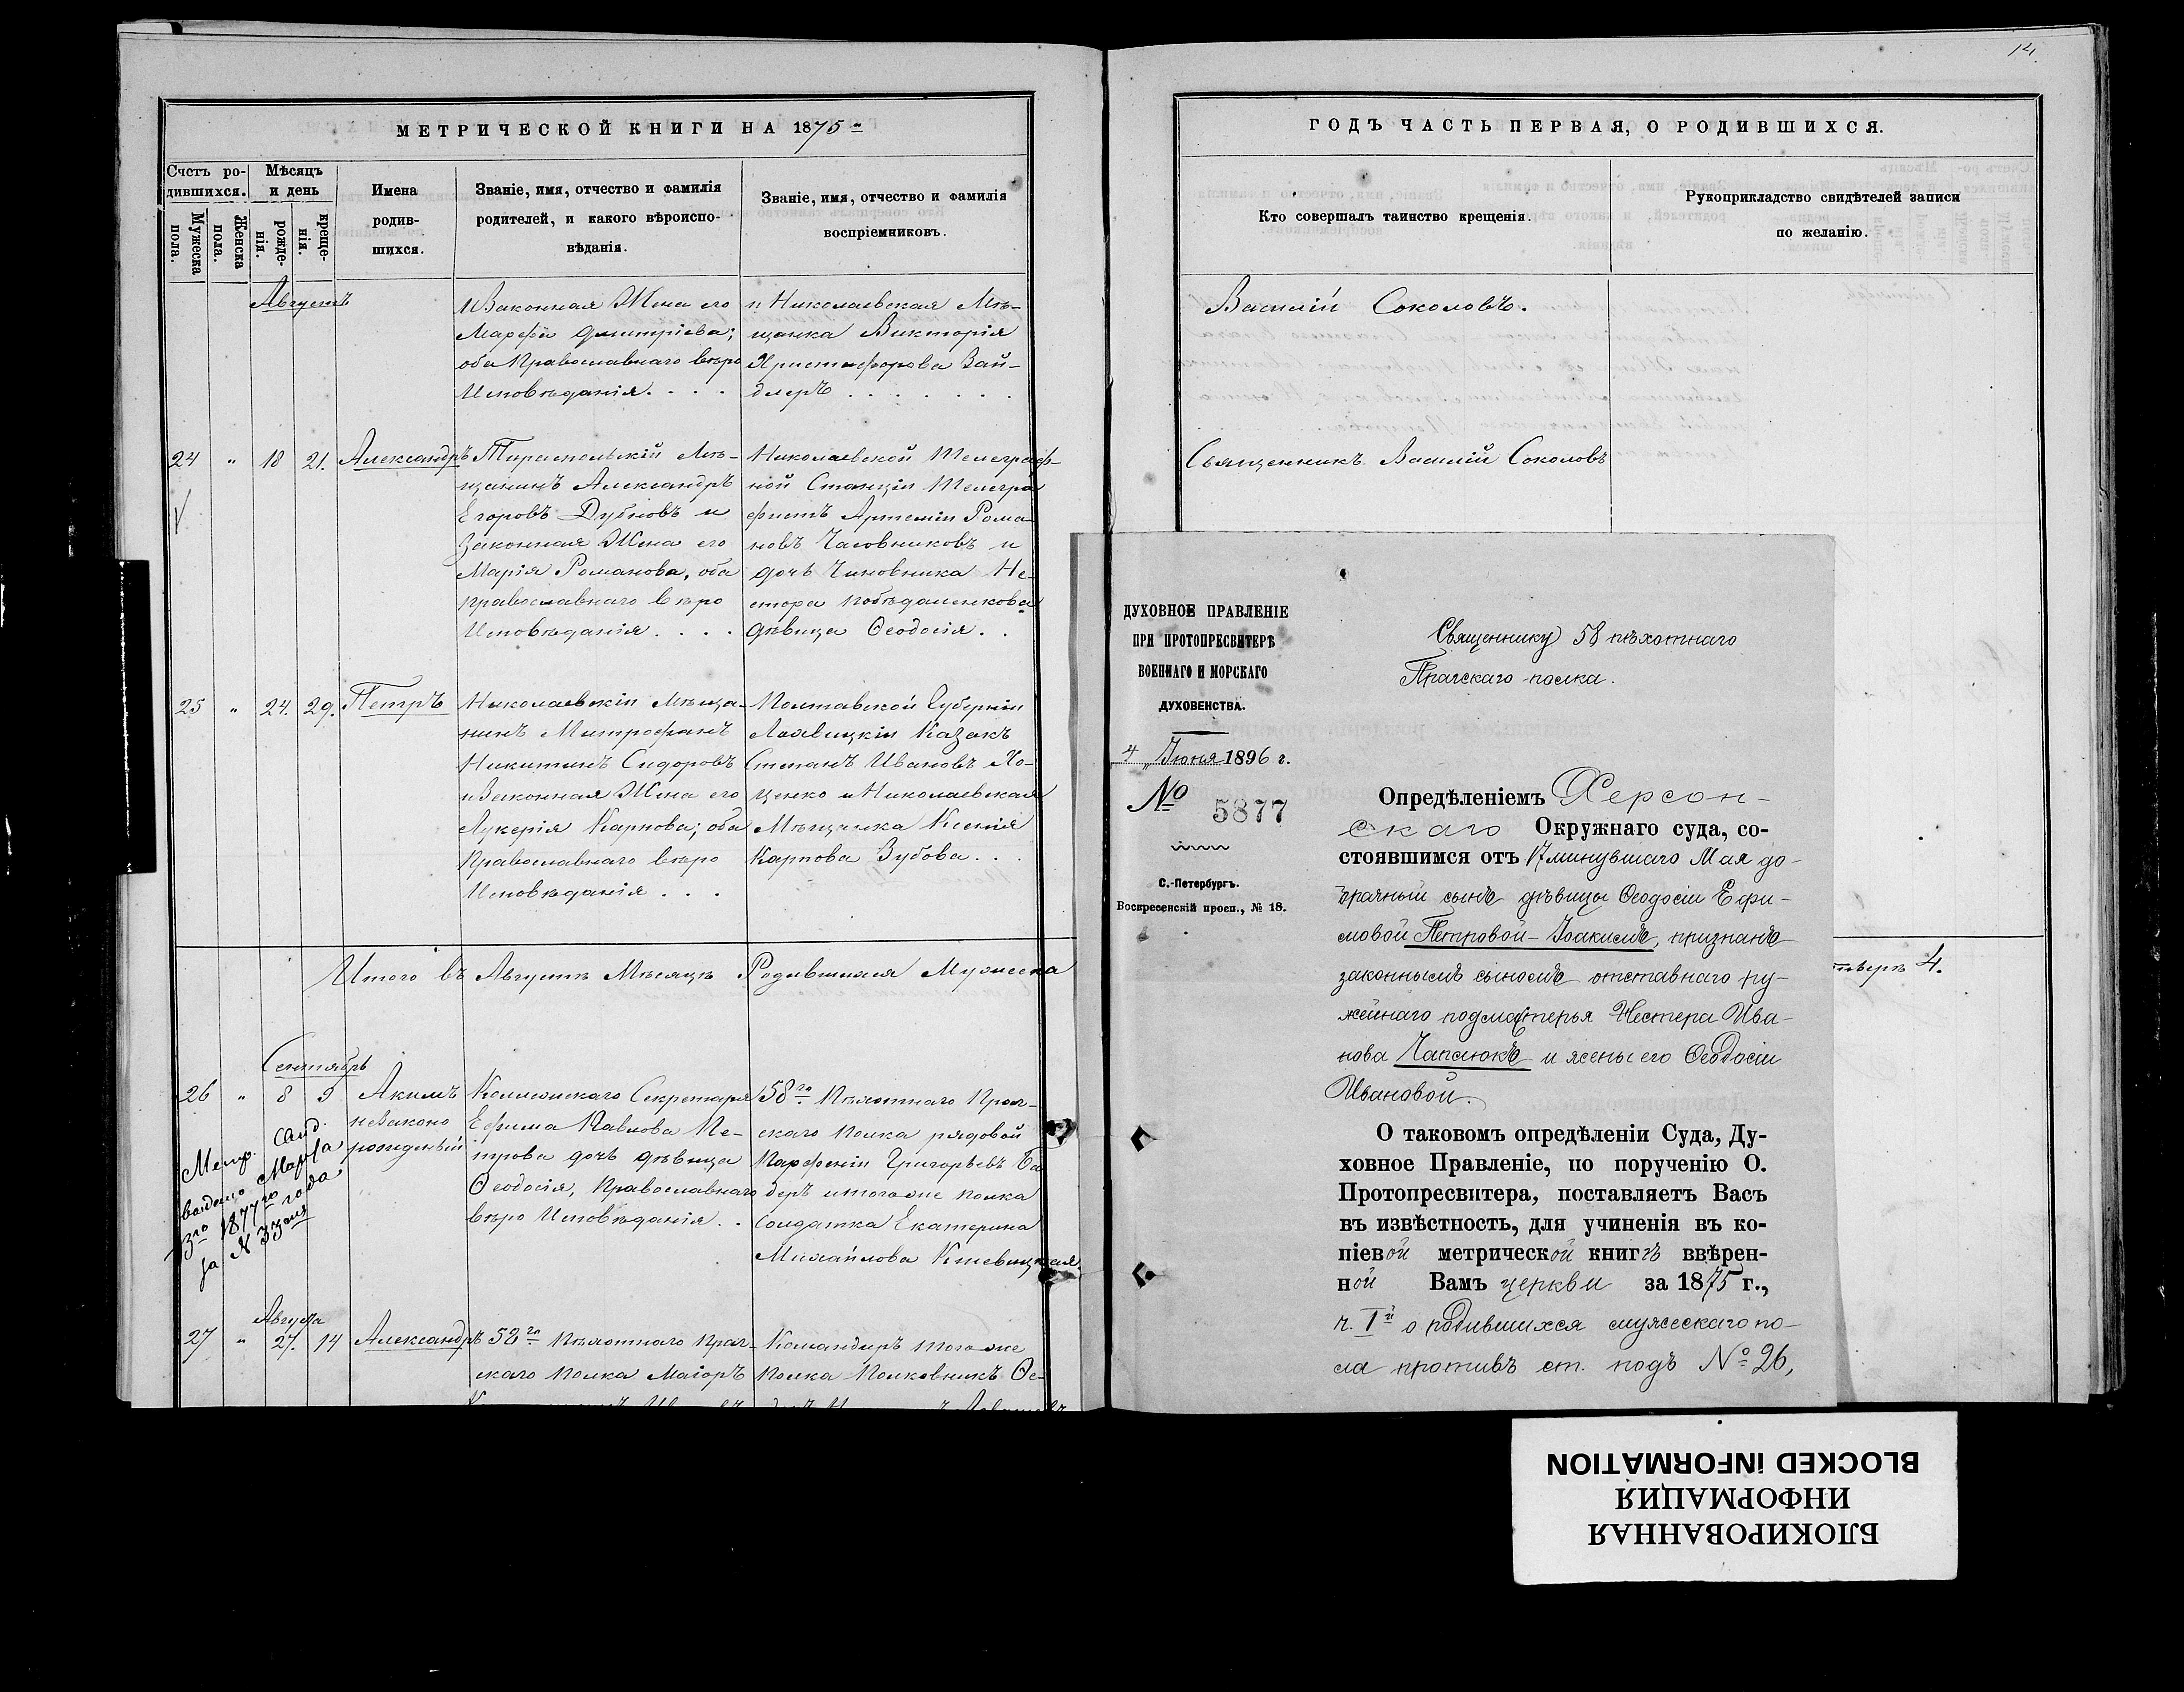 14.
МЕТРИЧЕСКОЙ КНИГИ НА 1875
Счетъ ро-
дившихся.
Мужеска
пола.
Женска
пола.
Мѣсяцъ
и день
рожде-
нія.
креще-
нія.
Имена
родив-
шихся.
Званіе, имя, отчество и фамилія
родителей, и какого вѣроиспо-
вѣданія.
Званіе, имя, отчество и фамилія
воспріемниковъ.
Августъ
и Законная Жена его
Марфа Дмитріева;
оба Православнаго вѣро
Исповѣданія. . . .
и Николаевская Мѣ-
щанка Викторія
Христофорова Зай-
длеръ . . . . . .
24 " 18 21. Александръ
Тираспольскій Мѣ-
щанинъ Александръ
Егоровъ Дубновъ и
Законная Жена его
Марія Романова, оба
православнаго вѣро
Исповѣданія . . . .
Николаевской Телеграф-
ной Станціи Телегра
фистъ Артемій Рома-
новъ Часовниковъ и
дочь Чиновника Не-
стора Побѣдаменкова
дѣвица Ѳеодосія . .
25 " 24. 29. Петръ
Николаевскій Мѣща-
нинъ Митрофанъ
Никитинъ Сидоровъ
и Законная Жена его
Лукерія Карпова; оба
Православнаго вѣро
Исповѣданія . . .
Полтавской Губерніи
Казакъ
Степанъ Ивановъ Хо-
ценко и Николаевская
Мѣщанка Ксенія
Карпова Зубова . . .
Итого въ Августѣ Мѣсяцѣ Родившихся Мужеска
Сентябрь
26 " 8 9 Акимъ
незаконо
рожденный
Метр. Свид.
выдано Марта
3го 1877го года
за № 33мъ
Коллежскаго Секретаря
Ефима Павлова Пе-
трова дочь дѣвица
Ѳеодосія, Православнаго
вѣро Исповѣданія . .
58го Пѣхотнаго Праг-
скаго полка рядовой
Парфеній Григорьевъ Ба
деръ и того же полка
Солдатка Екатерина
Михайлова
Августа
27 " 27. 14 Александръ
58го Пѣхотнаго Праг-
скаго полка Маіоръ
Командиръ того же
Полка Полковникъ Ѳе-
ГОДЪ ЧАСТЬ ПЕРВАЯ, О РОДИВШИХСЯ.
Кто совершалъ таинство крещенія.
Рукоприкладство свидѣтелей записи
по желанію.
Василій Соколовъ.
Священникъ Василій Соколовъ
4.
ДУХОВНОЕ ПРАВЛЕНІЕ
ПРИ ПРОТОПРЕСВИТЕРѢ
ВОЕННАГО И МОРСКАГО
ДУХОВЕНСТВА.
4 „ Іюня 1896 г.
№ 5877
С.-Петербургъ.
Воскресенскій просп., № 18.
Священнику 58 пѣхотнаго
Прагскаго полка.
Опредѣленіемъ Херсон-
скаго Окружнаго суда, со-
стоявшимся отъ 17 минувшаго Мая до-
брачный сынъ дѣвицы Ѳеодосіи Ефи-
мовой Петровой - Іоакимъ, признанъ
законнымъ сыномъ отставнаго ру-
жейнаго подмастерья Нестера Ива-
нова Чапслюкъ и жены его Ѳеодосіи
Ивановой.
О таковомъ опредѣленіи Суда, Ду-
ховное Правленіе, по порученію О.
Протопресвитера, поставляетъ Васъ
въ извѣстность, для учиненія въ ко-
піевой метрической книгѣ ввѣрен-
ной Вамъ церкви за 1875 г.,
ч. Iй о родившихся мужескаго по-
ла противъ ст. подъ № 26,
БЛОКИРОВАННАЯ
ИНФОРМАЦИЯ
BLOCKED INFORMATION